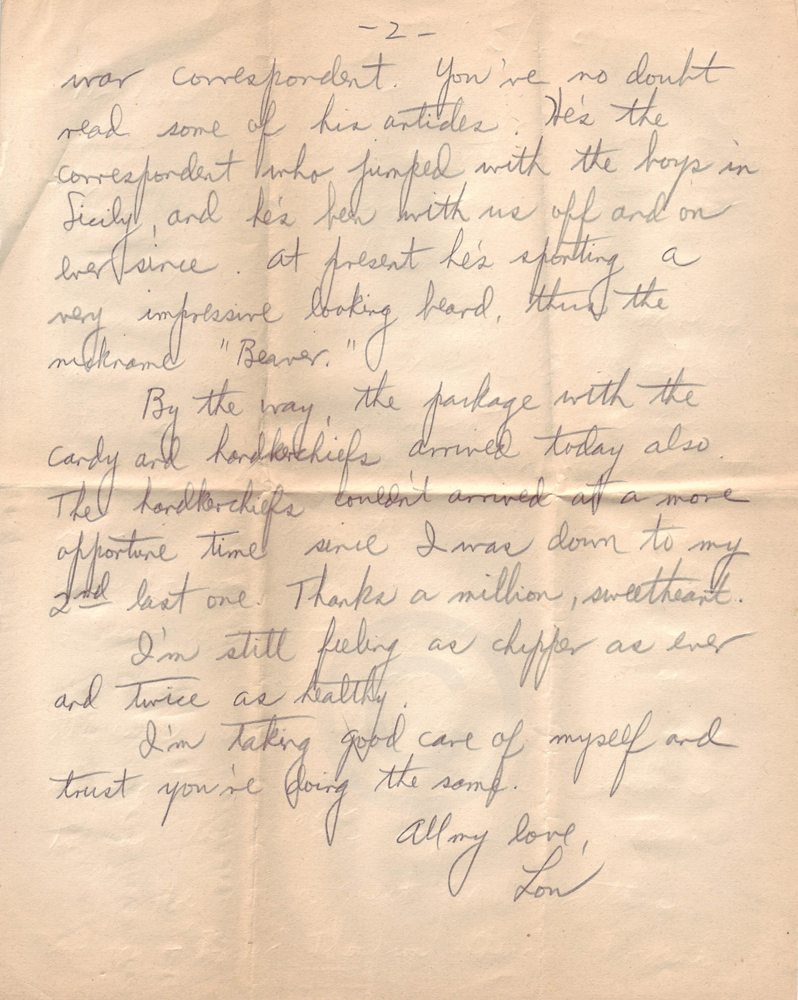 -2-
war correspondent. You've no doubt
read some of his articles. He's the
correspondent who jumped with the boys in
Sicily, and he's ben with us off and on
ever since. At present he's sporting a
very impressive looking beard, thus the
nickname "Beaver."
By the way, the package with the
candy and handkerchiefs arrived today also.
The handkerchiefs couldn't arrived at a more
opportune time since I was down to my
2nd last one. Thanks a million, sweetheart.
I'm still feeling as chipper as ever
and twice as healthy.
I'm taking good care of myself and
trust you're doing the same.
All my love,
Lou